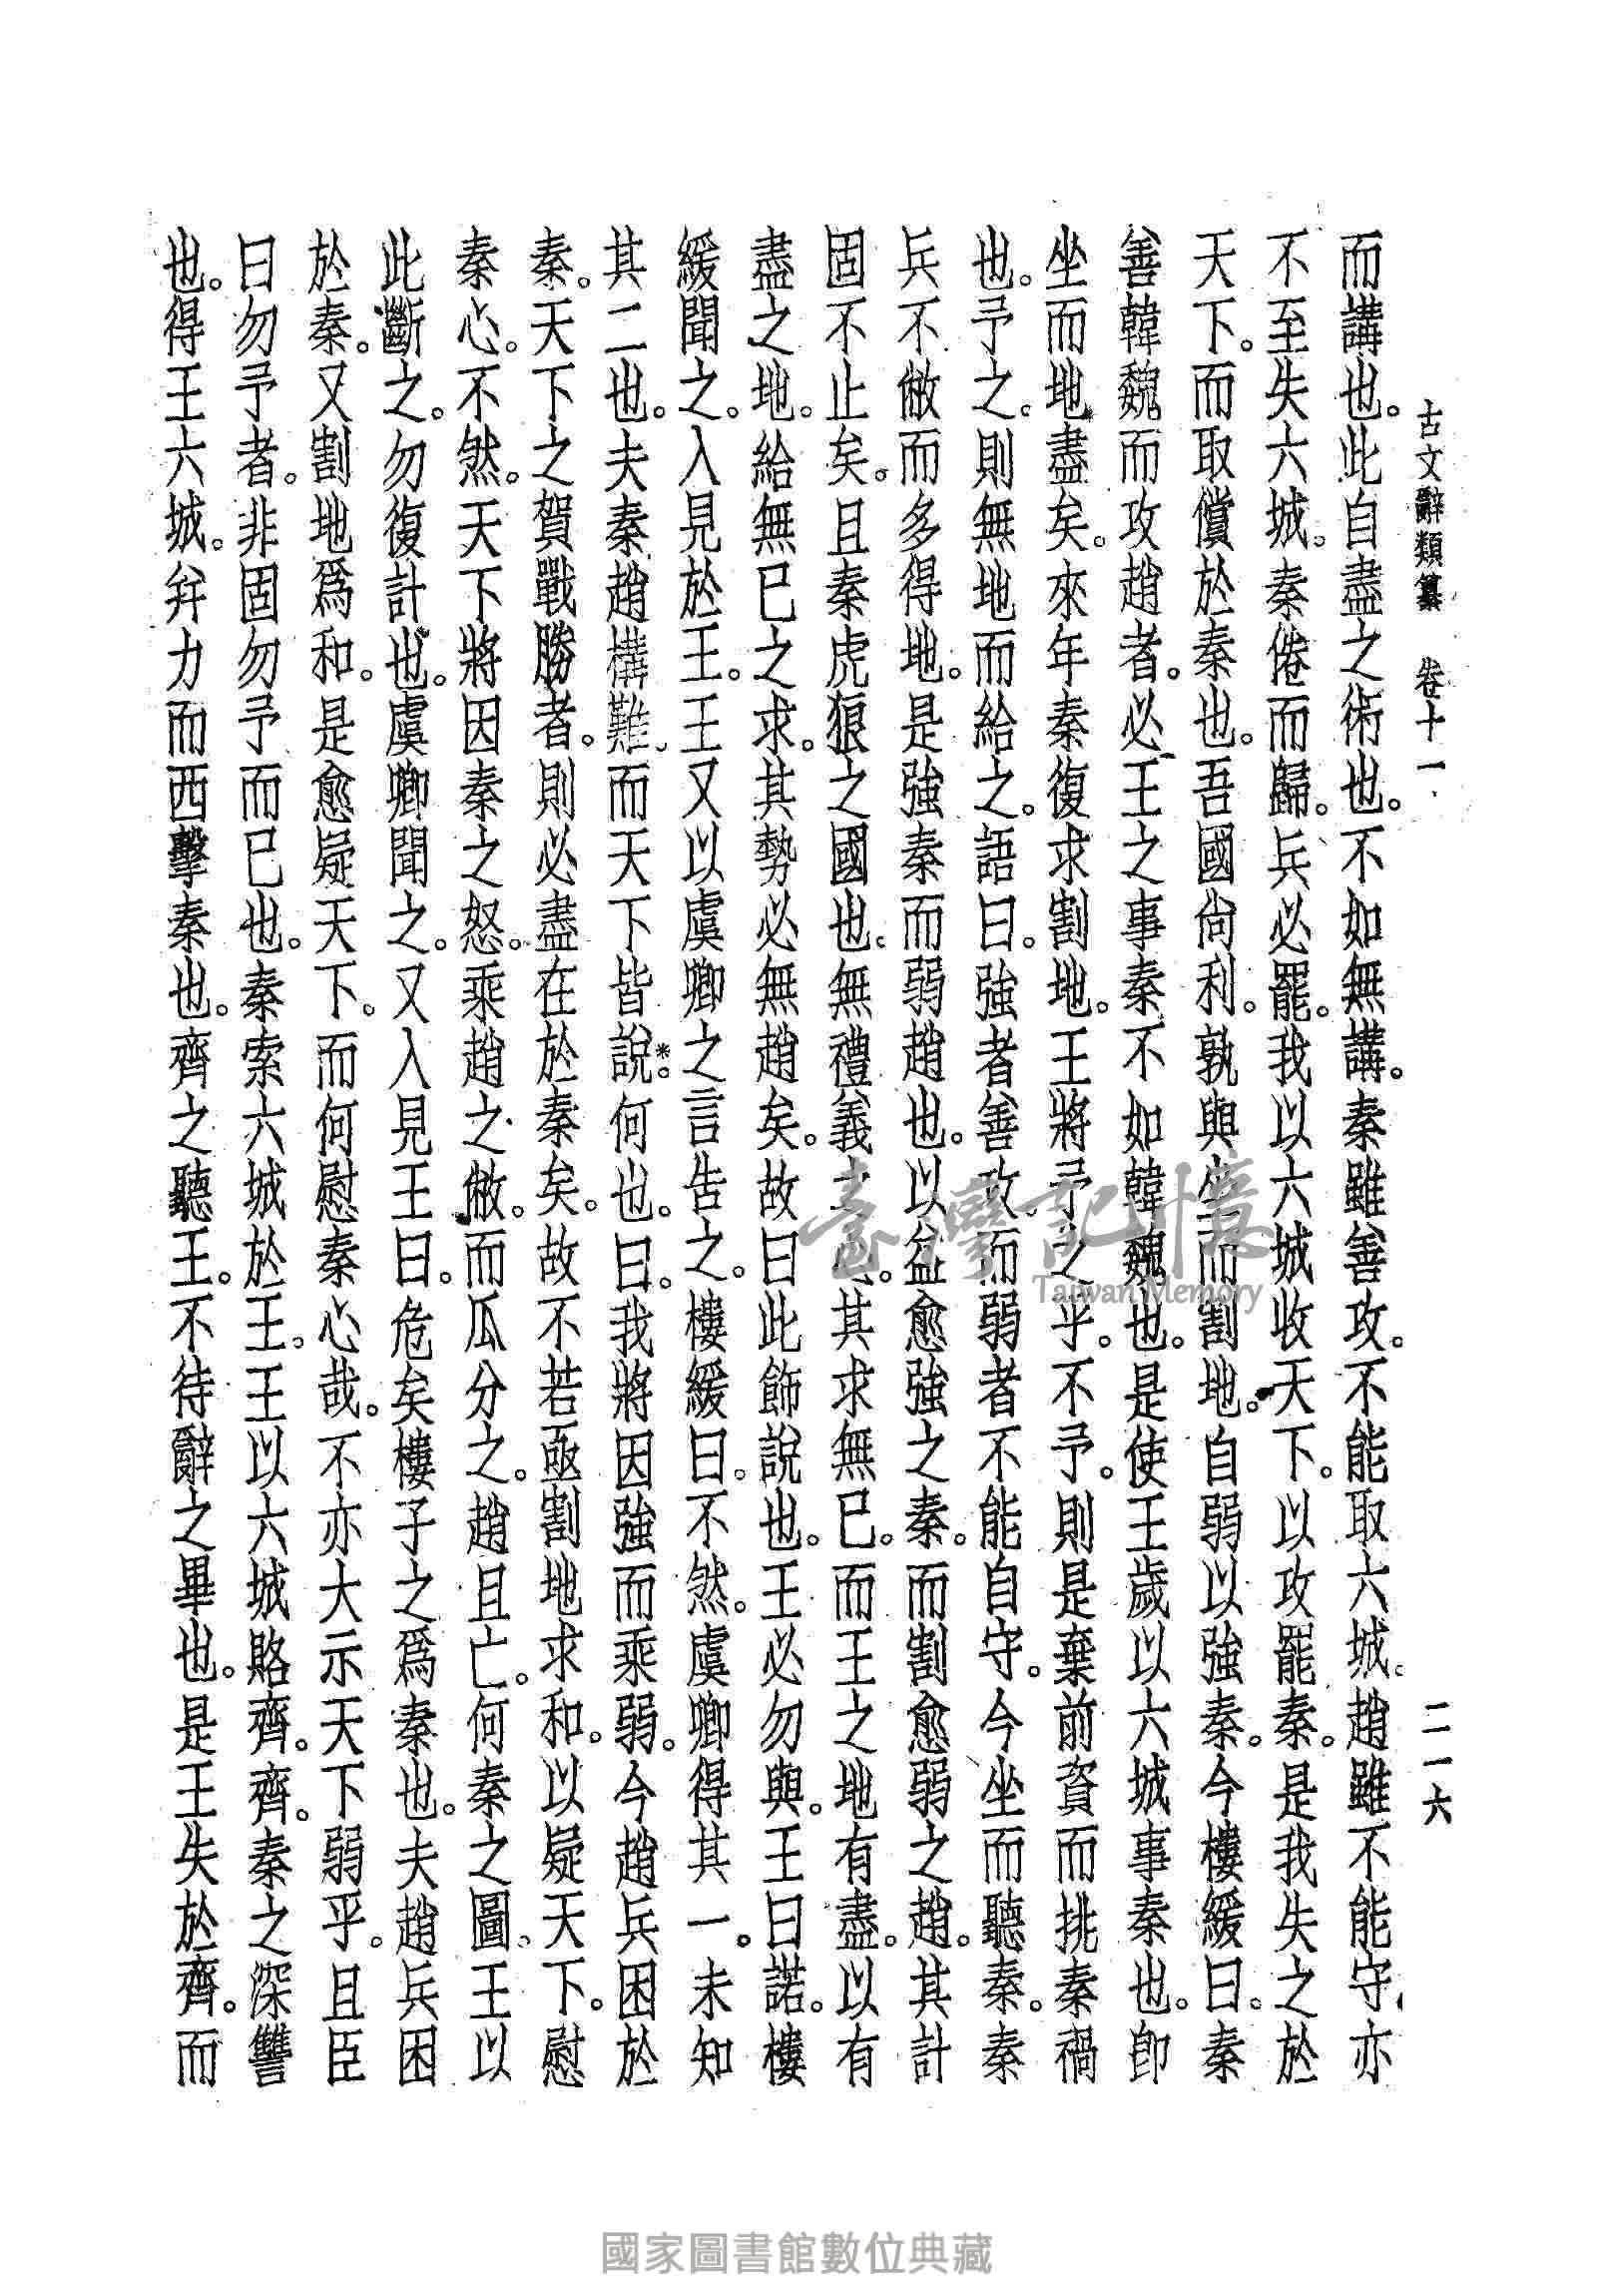 古文辭類纂　卷十一　二一六
而講也。此自盡之術也。不如無講。秦雖善攻。不能取六城。趙雖不能守。亦
不至失六城。秦倦而歸。兵必罷。我以六城收天下。以攻罷秦。是我失之於
天下。而取償於秦也。吾國尙利。孰與坐而割地。自弱以強秦。今樓緩曰。秦
善韓魏而攻趙者。必王之事秦不如韓魏也。是使王歲以六城事秦也。卽
坐而地盡矣。來年秦復求割地。王將予之乎。不予。則是棄前資而挑秦禍
也。予之。則無地而給之。語曰。強者善攻。而弱者不能自守。今坐而聽秦。秦
兵不敝而多得地。是強秦而弱趙也。以益愈強之秦。而割愈弱之趙。其計
固不止矣。且秦虎狼之國也。無禮義之。其求無已。而王之地有盡。以有
盡之地。給無已之求。其勢必無趙矣。故曰此飾說也。王必勿與。王曰諾。樓
緩聞之。入見於王。王又以虞卿之言告之。樓緩曰。不然。虞卿得其一。未知
其二也。夫秦趙構難。而天下皆說*。何也。曰。我將因強而乘弱。今趙兵困於
秦。天下之賀戰勝者。則必盡在於秦矣。故不若亟割地求和。以疑天下。慰
秦心。不然。天下將因秦之怒。乘趙之敝。而瓜分之。趙且亡。何秦之圖。王以
此斷之。勿復計也。虞卿聞之。又入見王曰。危矣樓子之爲秦也。夫趙兵困
於秦。又割地爲和。是愈疑天下。而何慰秦心哉。不亦大示天下弱乎。且臣
曰勿予者。非固勿予而已也。秦索六城於王。王以六城賂齊。齊。秦之深讐
也。得王六城。幷力而西擊秦也。齊之聽王。不待辭之畢也。是王失於齊。而
臺灣記憶
Taiwan Memory
國家圖書館數位典藏